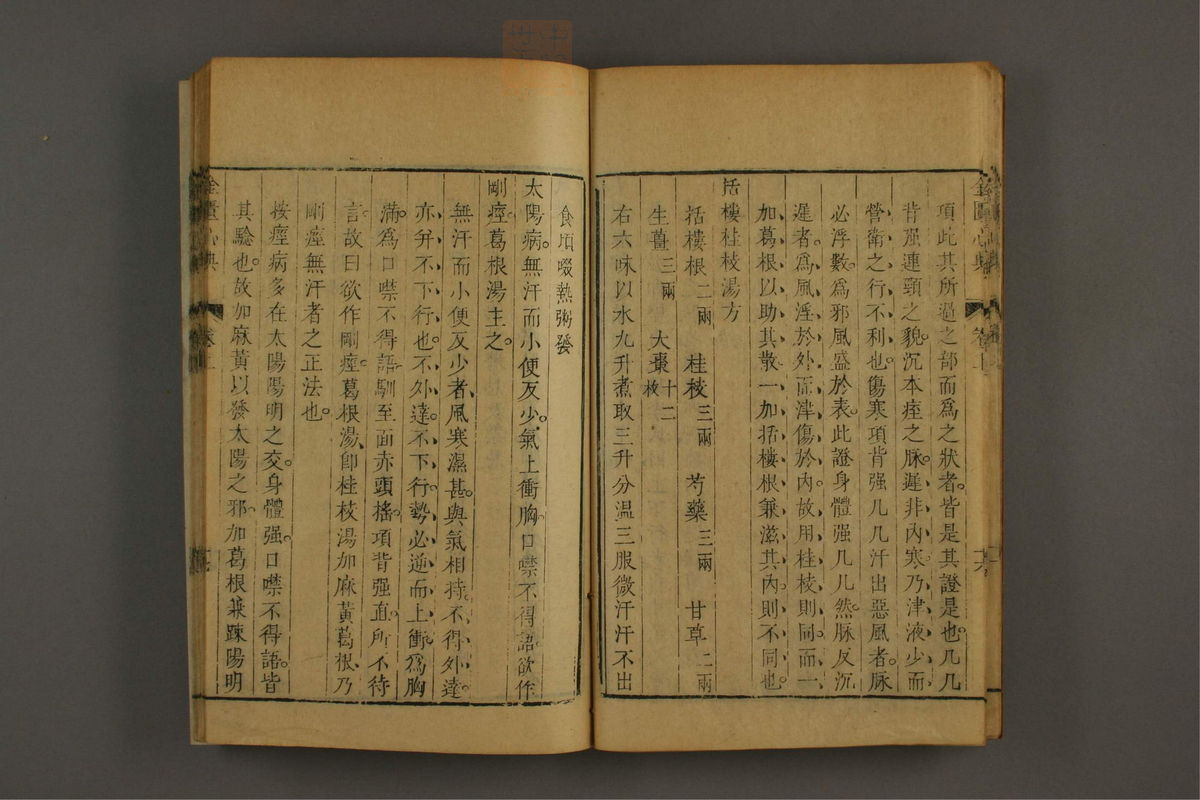 項此其所過之部而爲之狀者皆是其證是也几几
背强連頸之貌沉本痓之脉遲非内寒乃津液少而
營衛之行不利也傷寒項背强几几汗出惡風者脉
必浮數爲邪風盛於表此證身體强几几然脉反沉
遲者爲風淫於外而津傷於内故用桂枝則同而一
加葛根以助其散一加括樓根兼滋其内則不同也
括樓桂枝湯方
括樓根二兩 桂枝三兩 芍藥三兩 甘草二兩
生薑三兩 大棗十二枚
右六味以水九升煮取三升分温三服微汗汗不出
食頃啜熱粥發
太陽病無汗而小便反少氣上衝胸口噤不得語欲作
剛痓葛根湯主之
無汗而小便反少者風寒濕甚與氣相持不得外達
亦并不下行也不外達不下行勢必逆而上衝爲胸
滿爲口噤不得語馴至面赤頭搖項背强直所不待
言故曰欲作剛痓葛根湯卽桂枝湯加麻黄葛根乃
剛痓無汗者之正法也
按痓病多在太陽陽明之交身體强口噤不得語皆
其驗也故加麻黄以發太陽之邪加葛根兼踈陽明
金匱心典 卷上